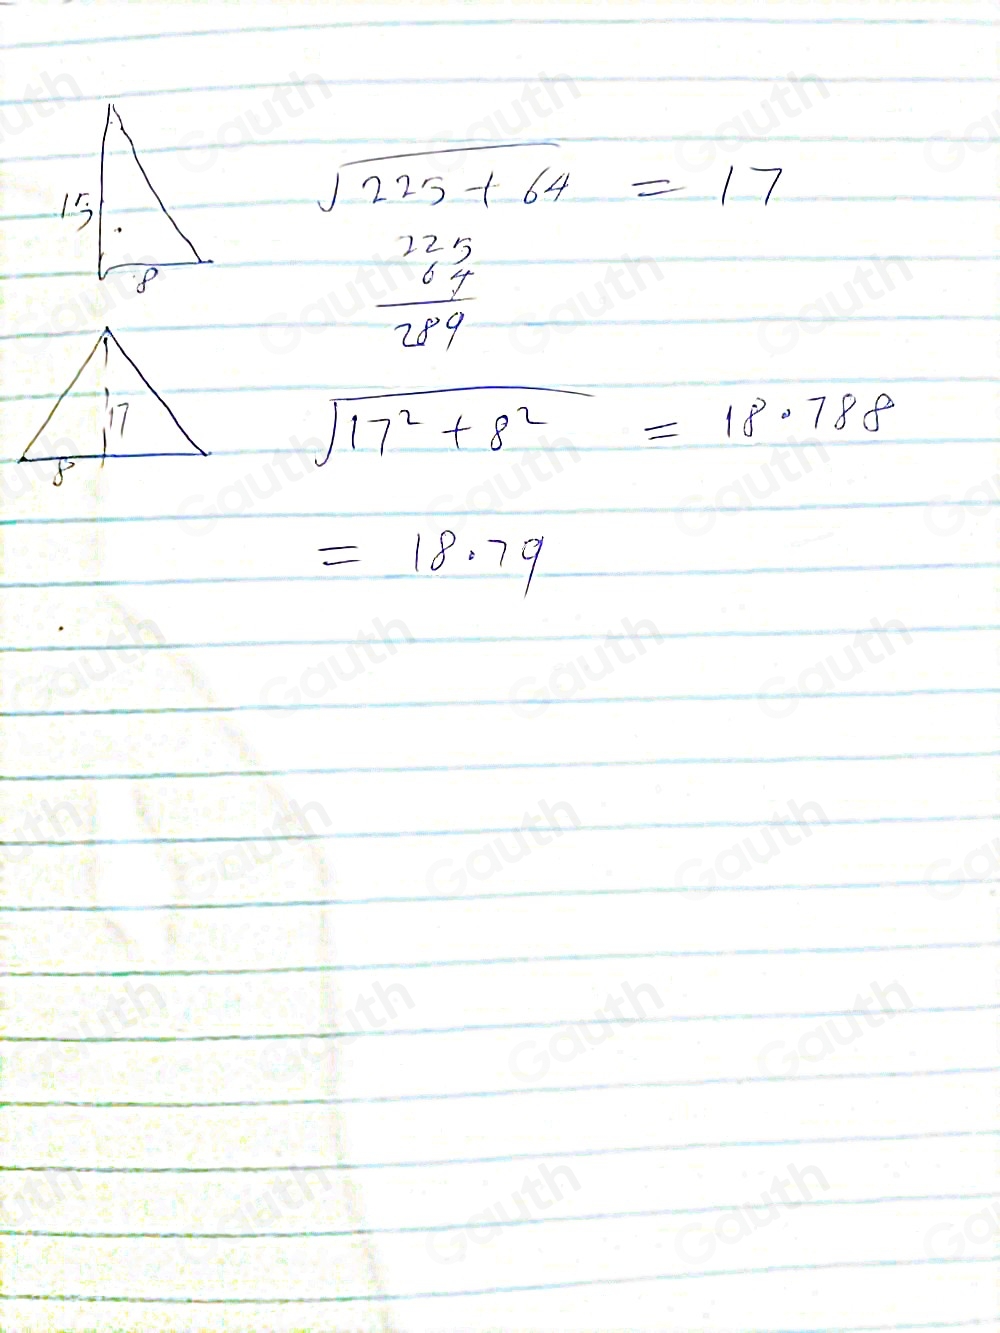 15
8
√225 + 64 = 17
225
64
289
17
8
√17² + 8² = 18.788
= 18.79
Gauth